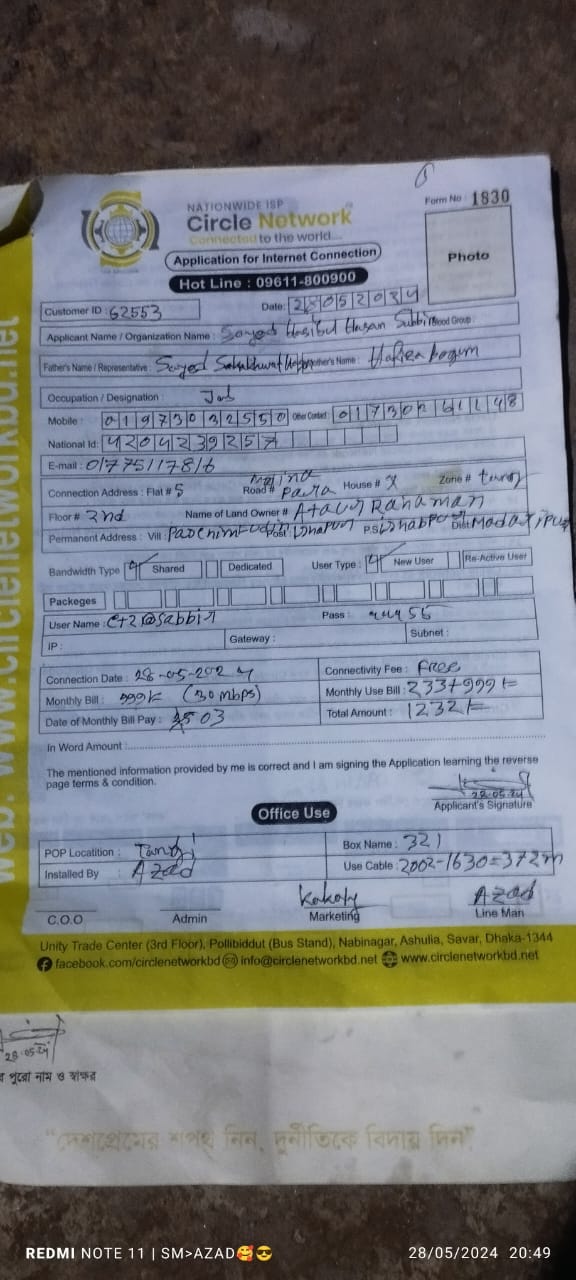 NATIONWIDE ISP
Circle Network
Connected to the world....
Form No : 1830
Application for Internet Connection
Photo
Hot Line : 09611-800900
Customer ID : 62553 Date:
Applicant Name / Organization Name : Sayed Hasibul Hasan Blood Group :
Father's Name / Representative : Sayed Mother's Name :
Occupation / Designation : Job
Mobile : 01973032550 Other Contact :
National Id: 4204239257
E-mail : 01775117816
Connection Address : Flat # 5 Road # para House # x Zone #
Floor # 2nd Name of Land Owner # Ataur Rahaman
Permanent Address : Vill : Post : P.S : Dist: Madaripur
Bandwidth Type Shared Dedicated User Type : New User Re-Active User
Packeges
User Name : Pass :
IP : Gateway : Subnet :
Connection Date : 28-05-2024 Connectivity Fee : Free
Monthly Bill : 999 (30 mbps) Monthly Use Bill : 233+999
Date of Monthly Bill Pay : 03 Total Amount : 1232
In Word Amount :
The mentioned information provided by me is correct and I am signing the Application learning the reverse
page terms & condition.
28.05.24
Applicant's Signature
Office Use
POP Locatition : Tongi Box Name : 321
Installed By Azad Use Cable : 2002-1630=372m
Kakoly Azad
C.O.O Admin Marketing Line Man
Unity Trade Center (3rd Floor), Pollibiddut (Bus Stand), Nabinagar, Ashulia, Savar, Dhaka-1344
facebook.com/circlenetworkbd info@circlenetworkbd.net www.circlenetworkbd.net
web: www.circlenetworkbd.net
28.05.24
পুরো নাম ও স্বাক্ষর
“দেশপ্রেমের শপথ নিন, দুর্নীতিকে বিদায় দিন”
REDMI NOTE 11 | SM>AZAD🥰😎 28/05/2024 20:49